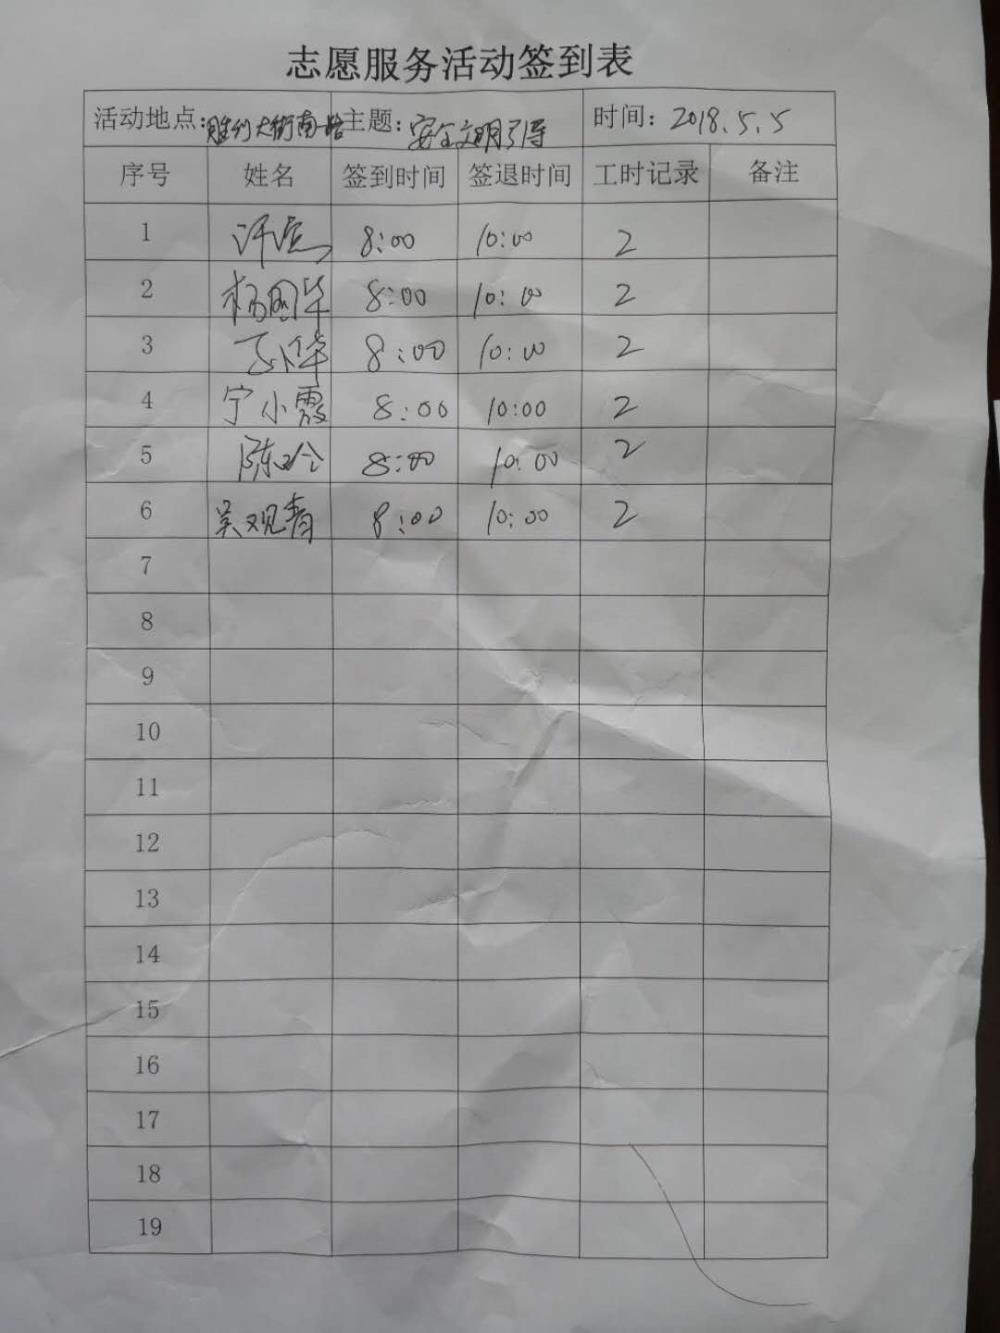 志愿服务活动签到表
活动地点：胜利大街南路 主题：安全文明引导 时间：2018.5.5
序号 姓名 签到时间 签退时间 工时记录 备注
1 8:00 10:00 2
2 杨国华 8:00 10:00 2
3 8:00 10:00 2
4 宁小霞 8:00 10:00 2
5 陈玲 8:00 10:00 2
6 吴观青 8:00 10:00 2
7
8
9
10
11
12
13
14
15
16
17
18
19